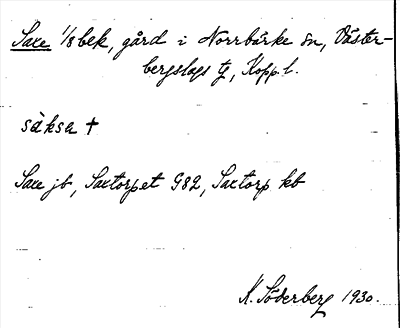 Saxe 1/8 bek, gård i Norrbärke sn, Väster-
bergslags tg, Kopp. l.
säksa †
Saxe jb, Saxtorpet G82, Saxtorp kb
K. Söderberg 1930.